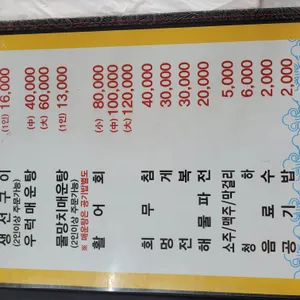 생선구이 (1인) 16,000
(2인이상 주문가능)
우럭매운탕 (中) 40,000
(大) 60,000
물망치매운탕 (1인) 13,000
(2인이상 주문가능)
※ 매운탕은 공기밥별도
활어회 (小) 80,000
(中) 100,000
(大) 120,000
회무침 40,000
멍게 30,000
전복 30,000
해물파전 20,000
소주/맥주/막걸리 5,000
청하 6,000
음료수 2,000
공기밥 2,000